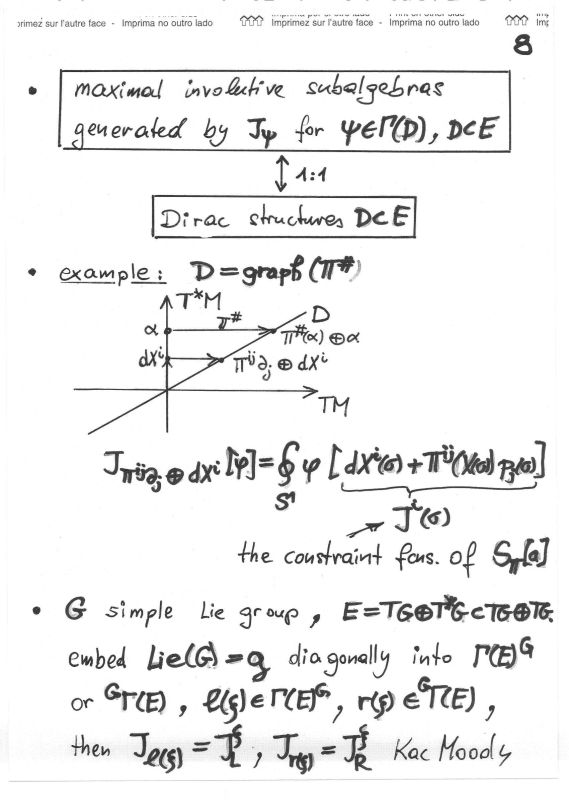 primez sur l'autre face - Imprima no outro lado
Imprimez sur l'autre face - Imprima no outro lado
8
• maximal involutive subalgebras
generated by J_ψ for ψ∈Γ(D), D⊂E
↕ 1:1
Dirac structures D⊂E
• example: D=graph(π^#)
T*M
α π^# D
π^#(α)⊕α
dX^i π^{ij}∂_j⊕dX^i
TM
J_{π^{ij}∂_j⊕dX^i}[φ]=∮_{S^1} φ[dX^i(σ)+π^{ij}(X(σ))p_j(σ)]
J^i(σ)
the constraint fcns. of S_π[a]
• G simple Lie group, E=TG⊕T*G⊂TG⊕TG.
embed Lie(G)=g diagonally into Γ(E)^G
or ^GΓ(E), l(ξ)∈Γ(E)^G, r(ξ)∈^GΓ(E),
then J_{l(ξ)}=J_L^ξ, J_{r(ξ)}=J_R^ξ Kac Moody